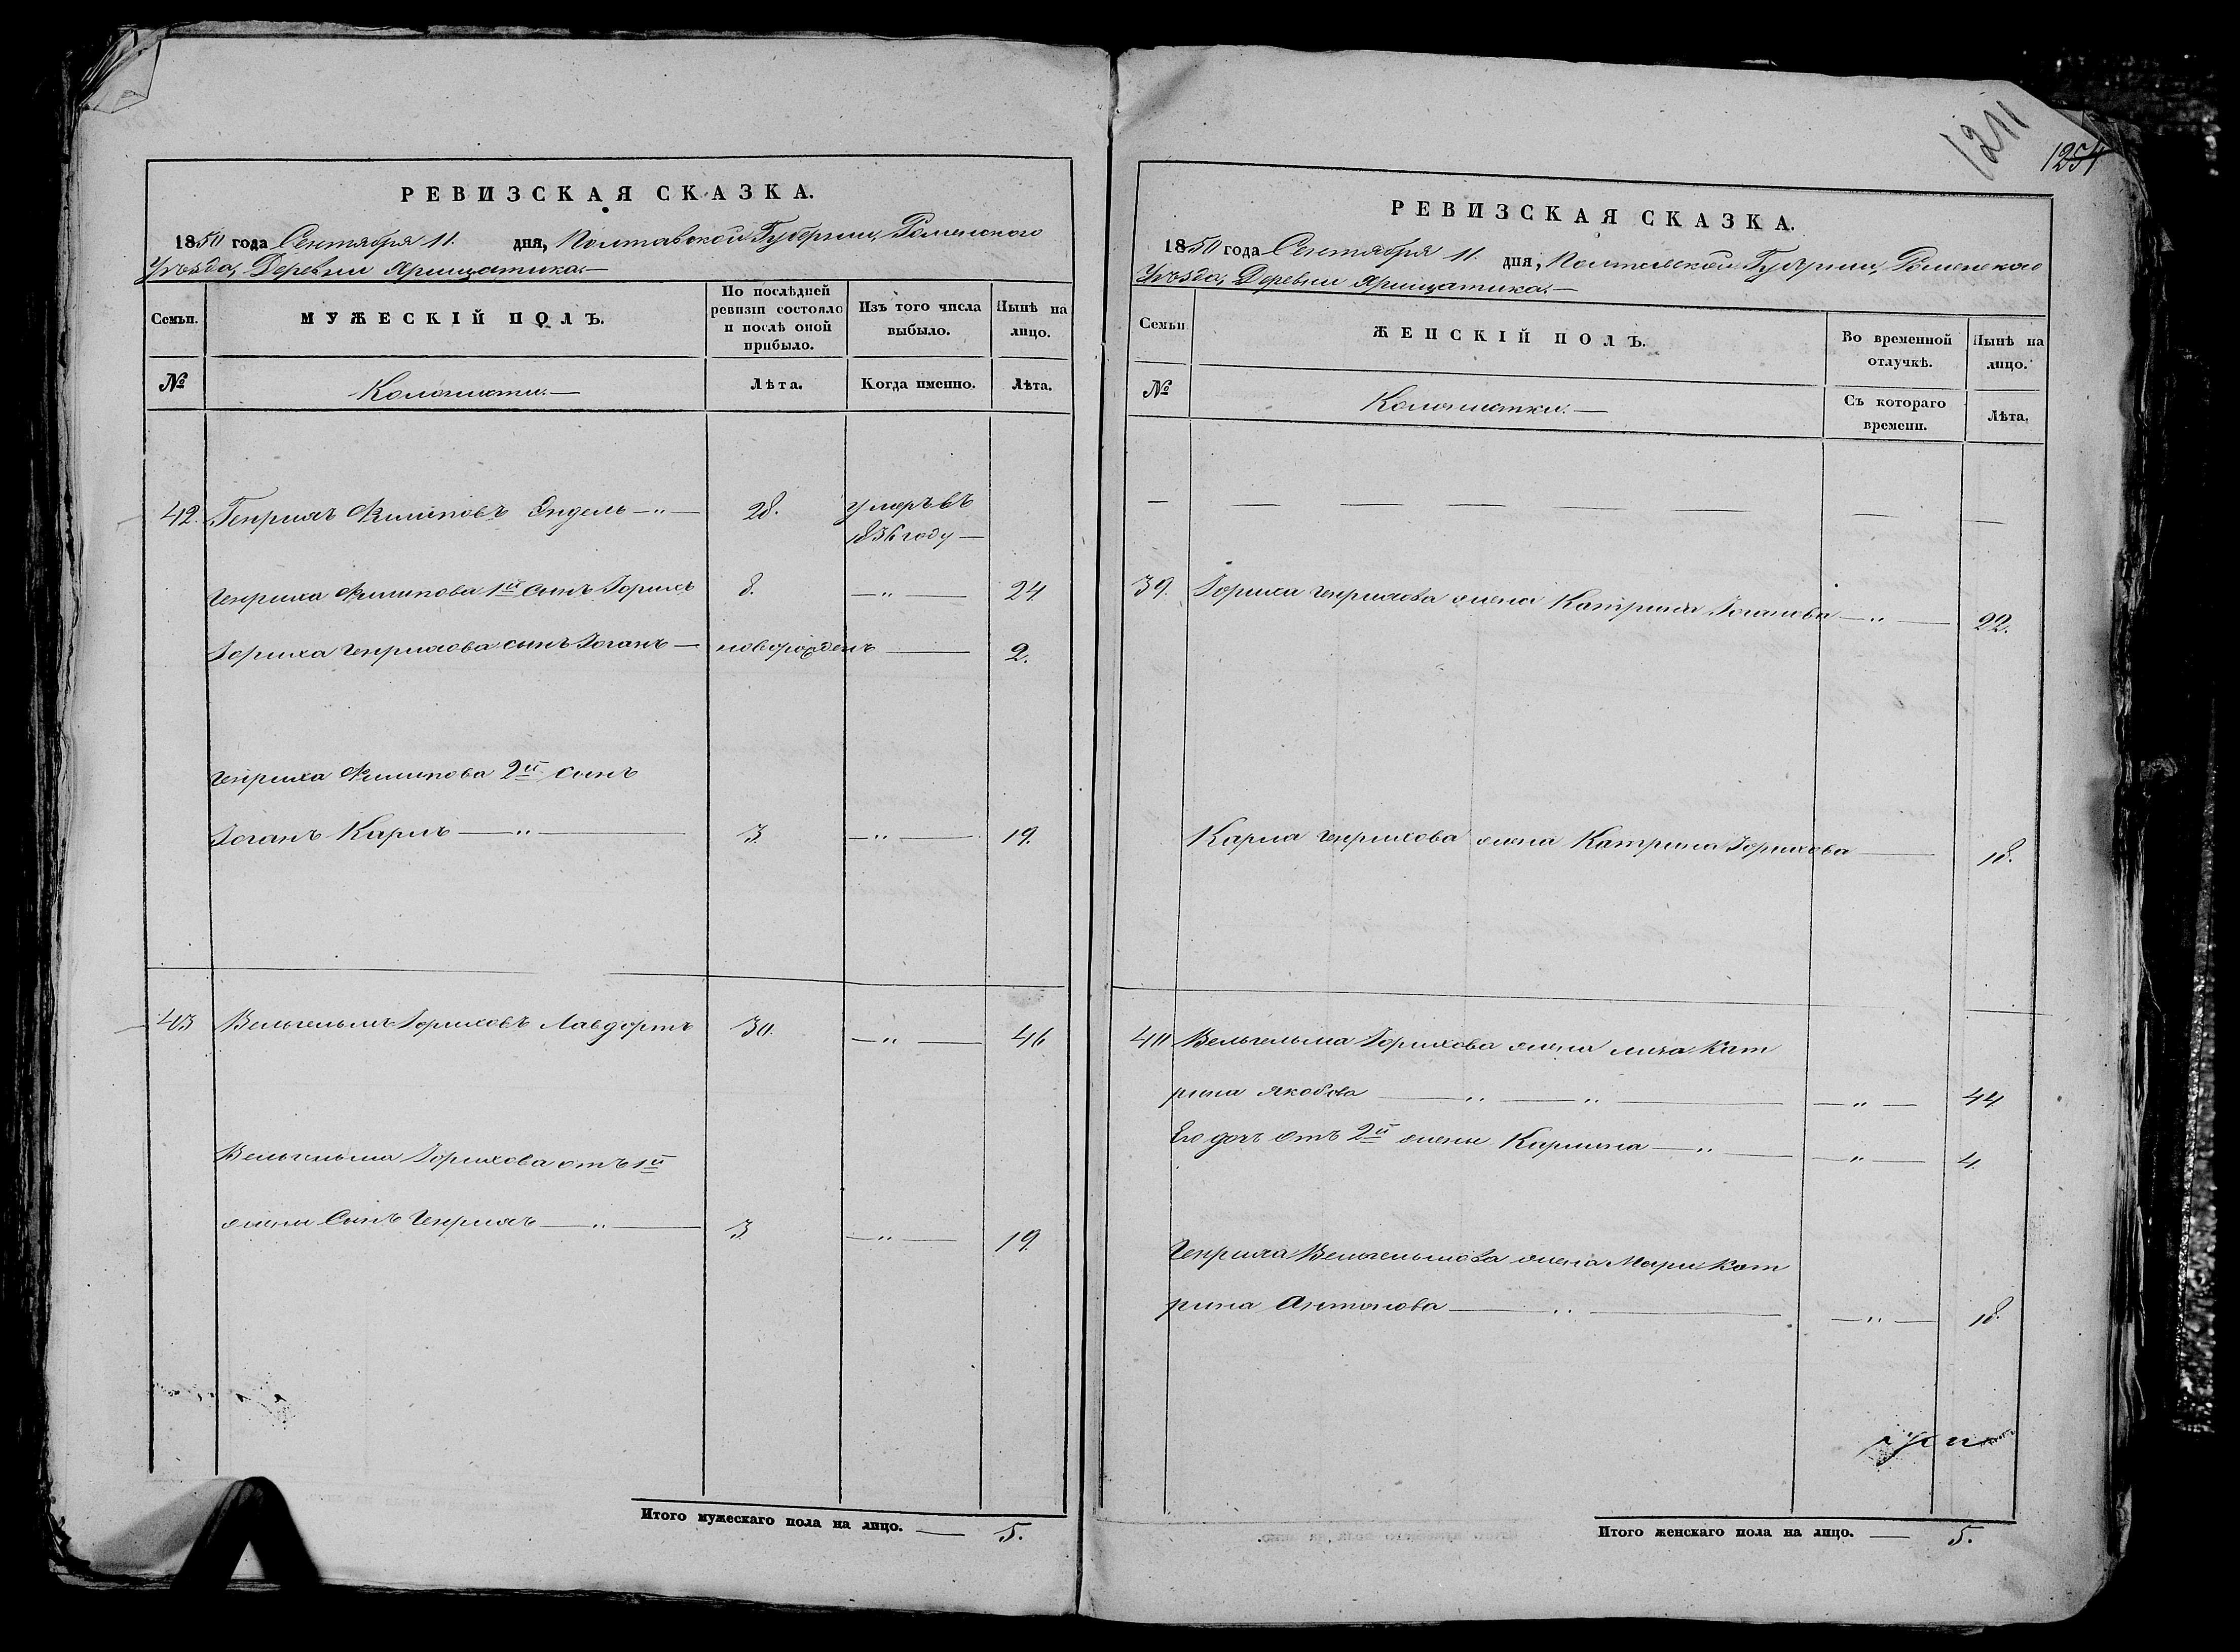 1211
1254
РЕВИЗСКАЯ СКАЗКА.
1850 года Сентября 11. дня, Полтавской Губерніи, Роменского
Уѣзда, Деревни
Семьи.
МУЖЕСКІЙ ПОЛЪ.
По послѣдней ревизіи состояло и послѣ оной прибыло.
Изъ того числа выбыло.
Нынѣ на лицо.
№
Колонисти.—
Лѣта.
Когда именно.
Лѣта.
42. Генрихъ Филиповъ Эндель —"— 28. умеръ въ
1836 году —
Генриха Филипова 1й сынъ Іорихъ 8. —"— 24
Іориха Генрихова сынъ Іоганъ — новорожденъ — 2.
Генриха Филипова 2й сынъ
Іоганъ Карлъ —"— 3. —"— 19.
43 Вельгельмъ Іориховъ 30. —"— 46
Вельгельма Іорихова отъ 1й
жены Сынъ Генрихъ —"— 3. —"— 19.
Итого мужескаго пола на лицо. — 5.
РЕВИЗСКАЯ СКАЗКА.
1850 года Сентября 11. дня, Полтавской Губерніи, Роменского
Уѣзда, Деревни
Семьи
ЖЕНСКІЙ ПОЛЪ.
Во временной отлучкѣ.
Нынѣ на лицо.
№
Колонистки.—
Съ котораго времени.
Лѣта.
— — — — — — — —
39. Іориха Генрихова жена Катрина Іоганова —"— 22.
Карла Генрихова жена Катрина Іорихова — 18.
40 Вельгельма Іорихова жена Кат
рина Якобова —"—"— —"— 44
Его дочь отъ 2й жены Карлина —"— —"— 4.
Генриха Вельгельмова жена Мари Кат
рина Антонова —"— —"— 18.
Итого женскаго пола на лицо. — 5.